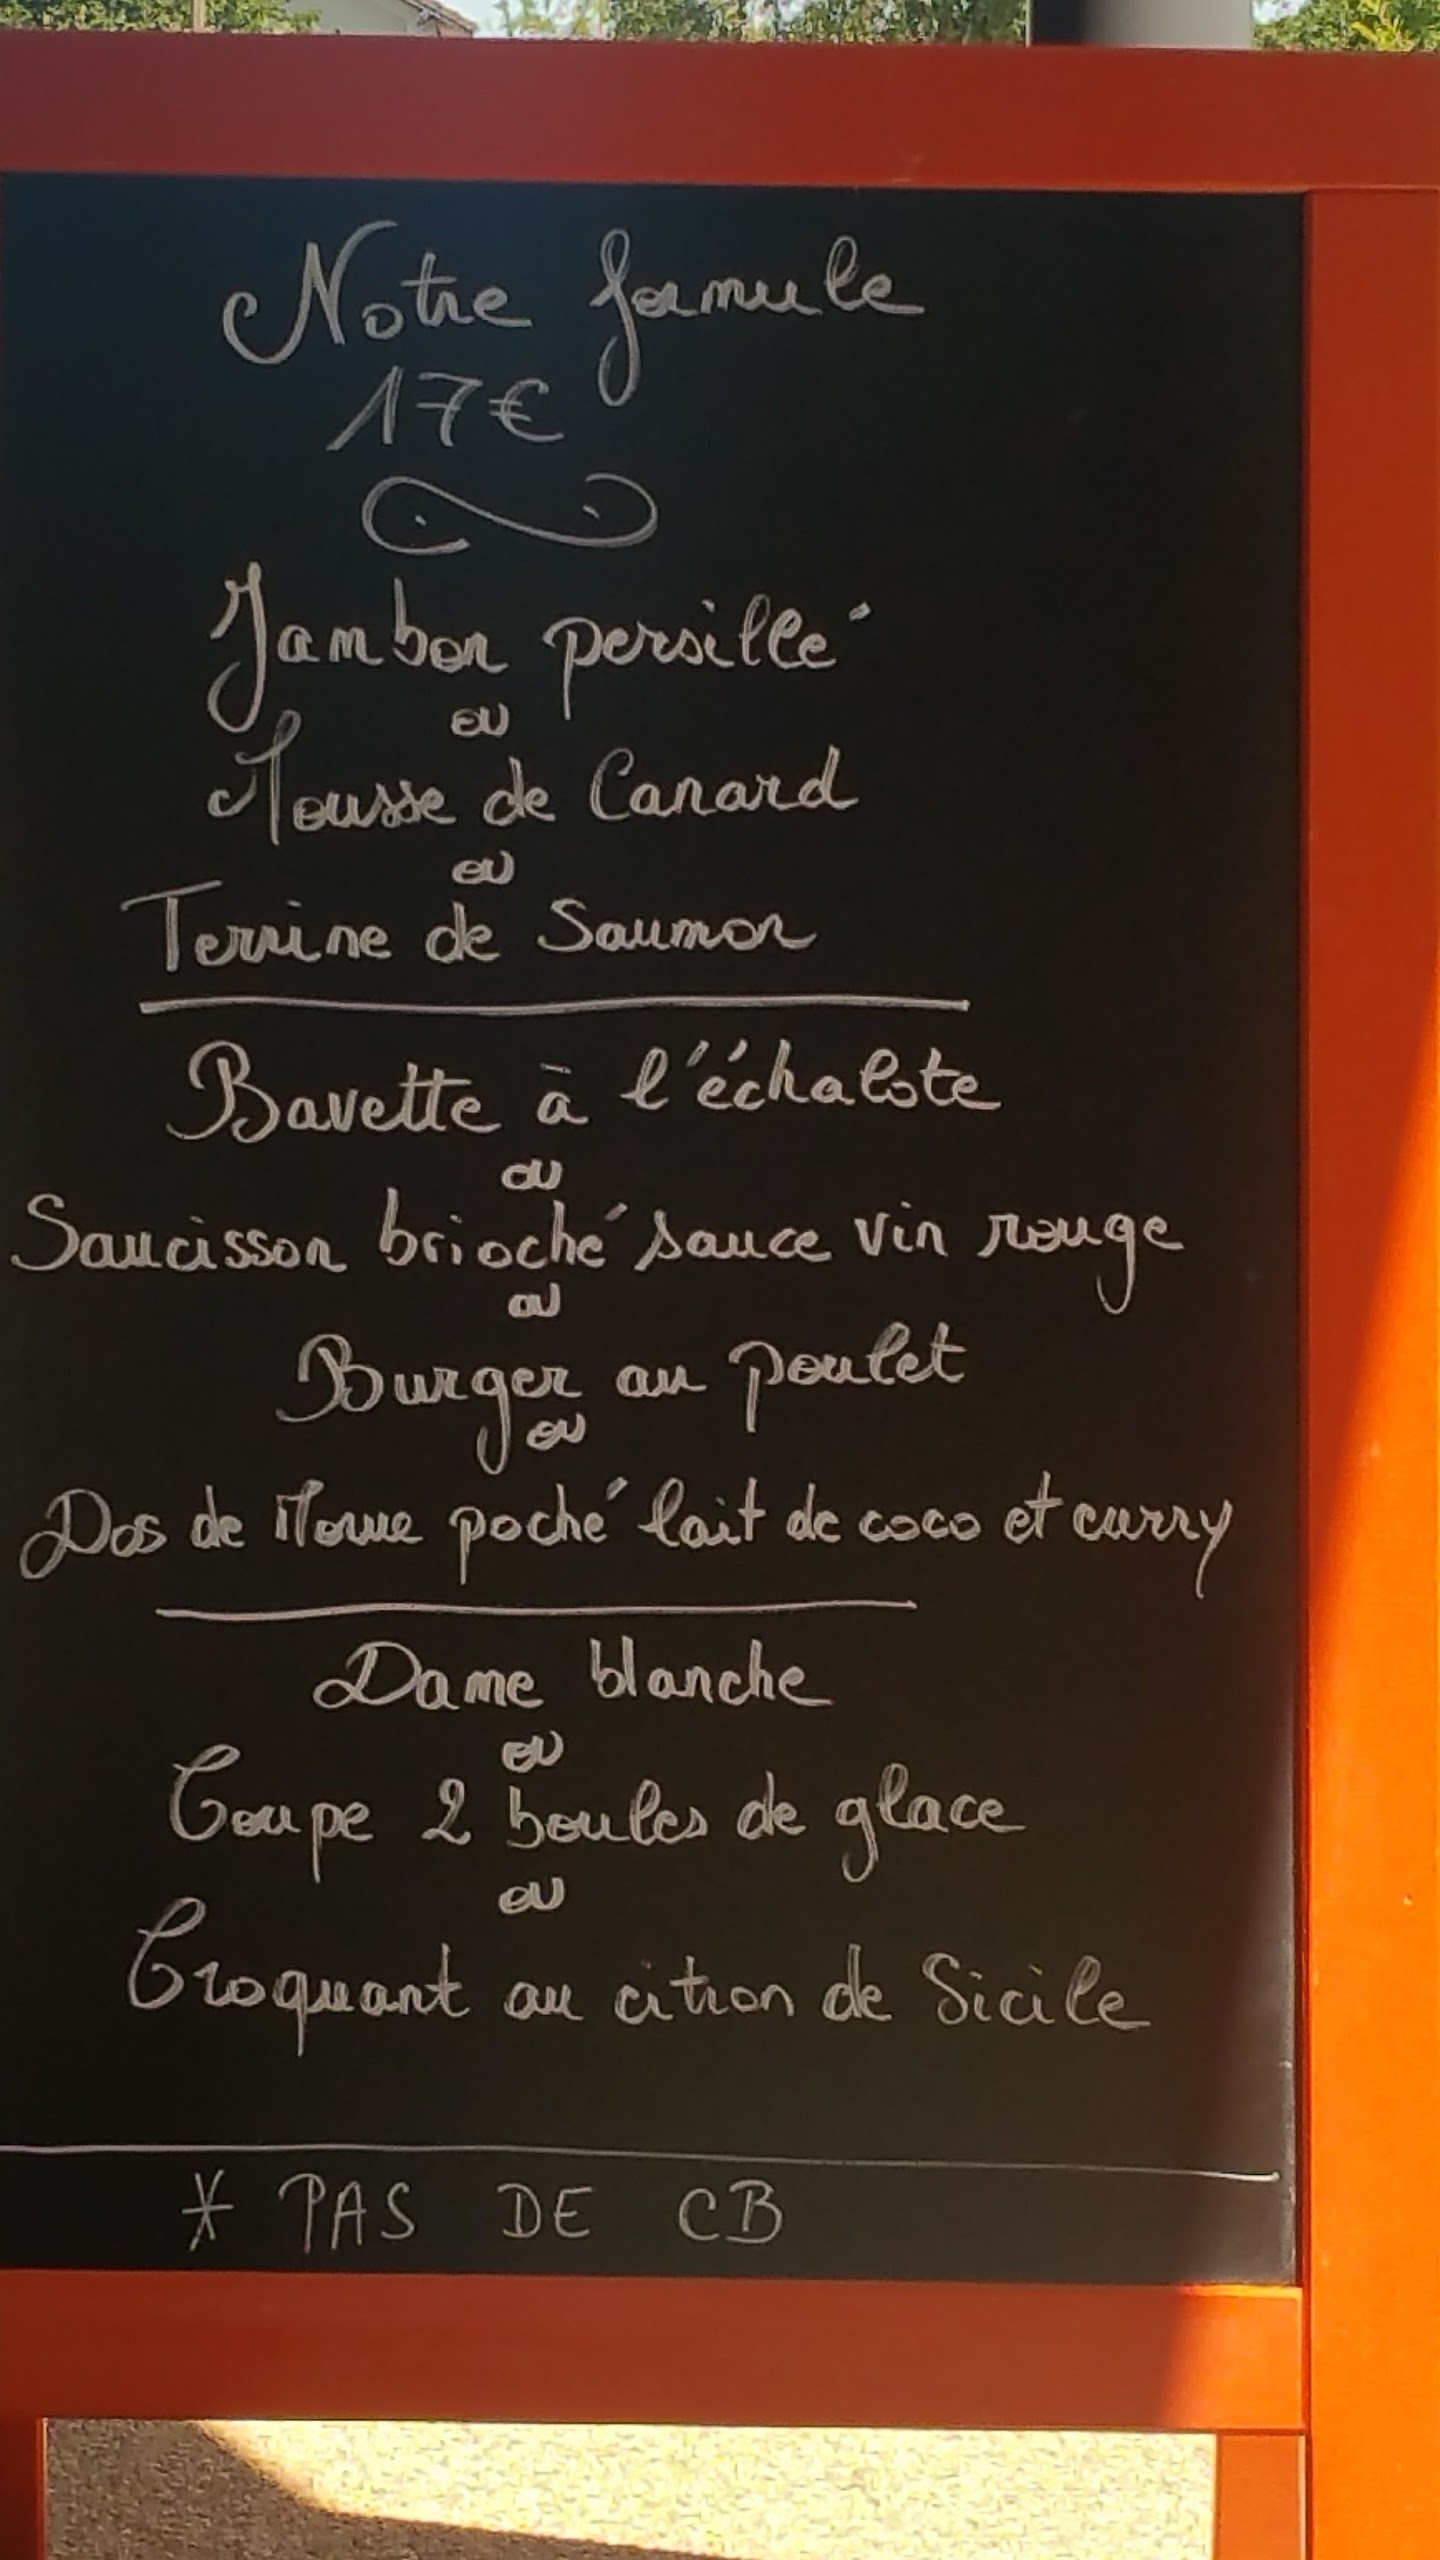 Notre formule
17€
Jambon persillé
ou
Mousse de Canard
ou
Terrine de Saumon
Bavette à l'échalote
ou
Saucisson brioché sauce vin rouge
ou
Burger au poulet
ou
Dos de Morue poché lait de coco et curry
Dame blanche
ou
Coupe 2 boules de glace
ou
Croquant au citron de Sicile
* PAS DE CB